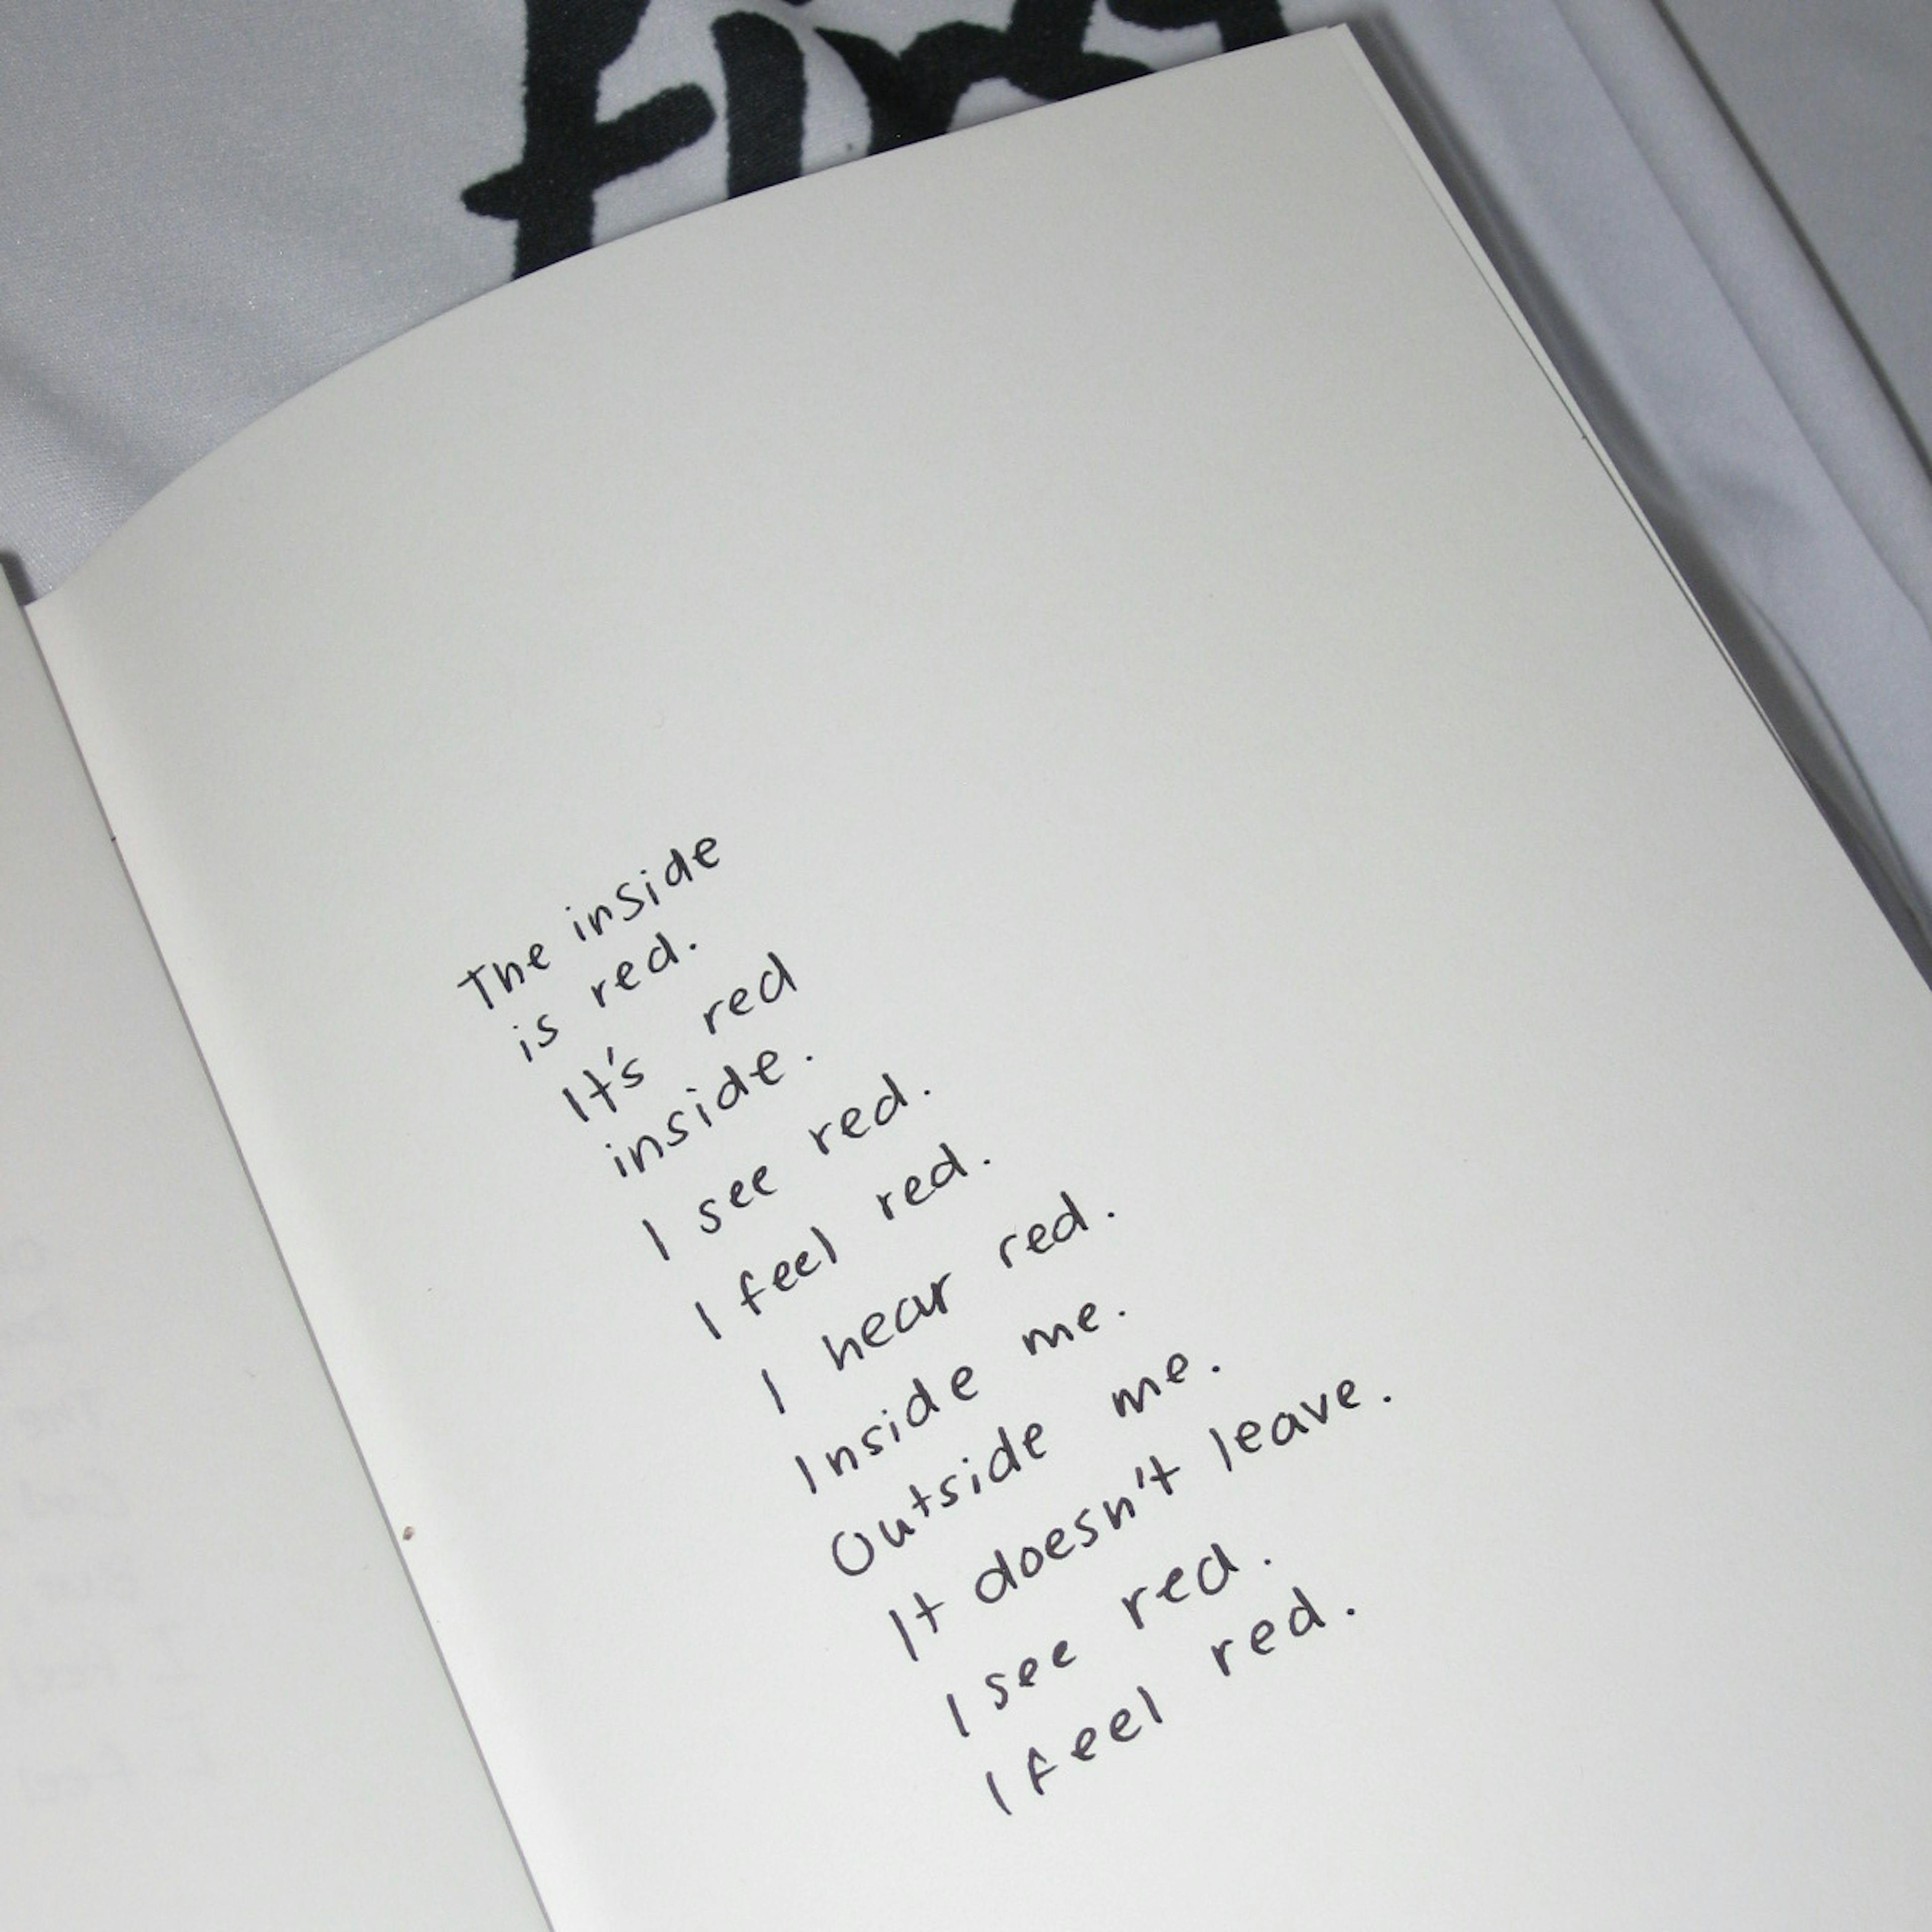 first
The inside
is red.
It's red
inside.
I see red.
I feel red.
I hear red.
Inside me.
Outside me.
It doesn't leave.
I see red.
I feel red.